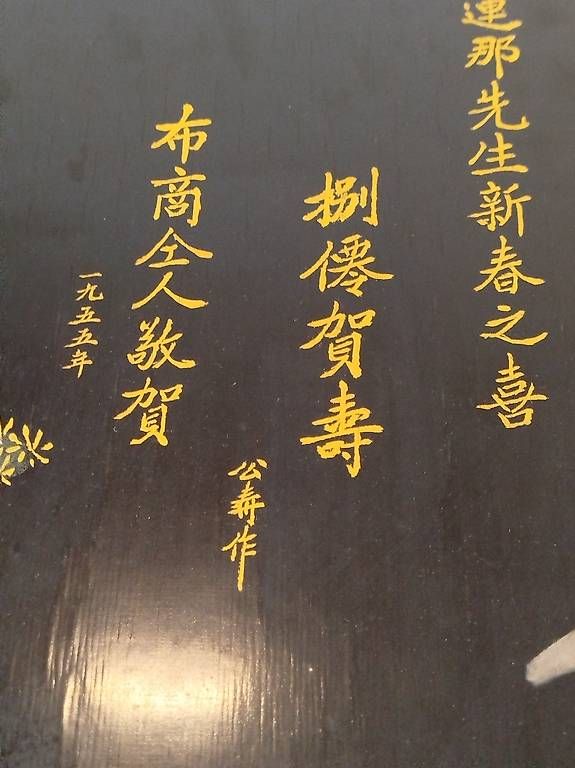 那先生新春之喜
捌僊賀壽
公壽作
布商仝人敬賀
一九五五年